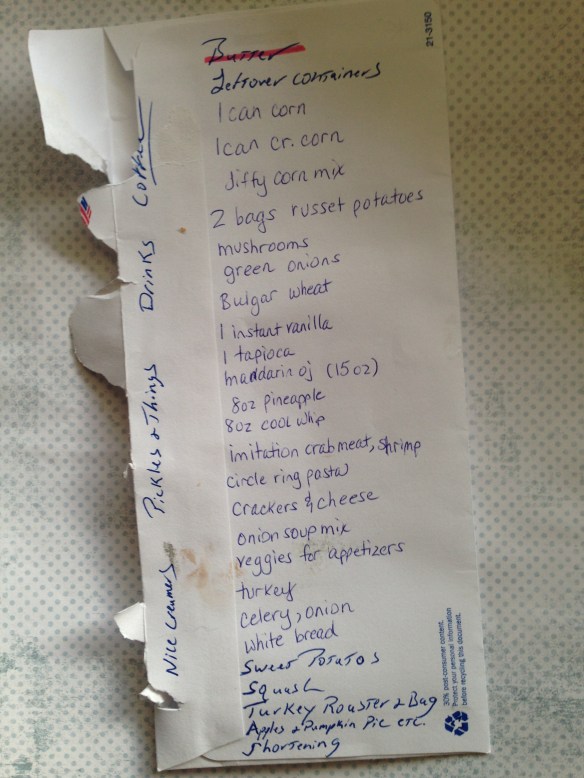 Butter
Leftover containers
1 can corn
1 can cr. corn
Jiffy corn mix
2 bags russet potatoes
mushrooms
green onions
Bulgar wheat
1 instant vanilla
1 tapioca
mandarin oj (15 oz)
8oz pineapple
8oz cool whip
imitation crabmeat, shrimp
circle ring pasta
Crackers & cheese
onion soup mix
veggies for appetizers
turkey
celery, onion
white bread
Sweet Potatos
Squash
Turkey Roaster & Bag
Apples & Pumpkin Pie etc.
Shortening
Nice Creamers Pickles & Things Drinks Coffee
21-3150
30% post-consumer content.
Protect your personal information
before recycling this document.